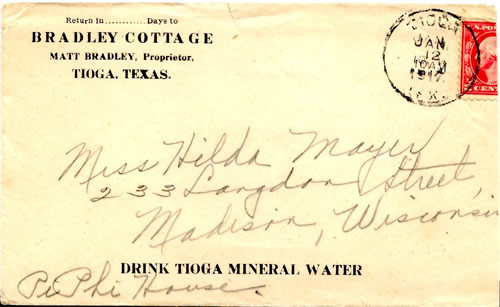 Return in ............ Days to
BRADLEY COTTAGE
MATT BRADLEY, Proprietor,
TIOGA, TEXAS.
TIOGA
JAN
12
10AM
1917
TEX.
U.S. POS
CENT
Miss Hilda Mayer
233 Langdon Street,
Madison, Wisconsin
DRINK TIOGA MINERAL WATER
Pi Phi House.